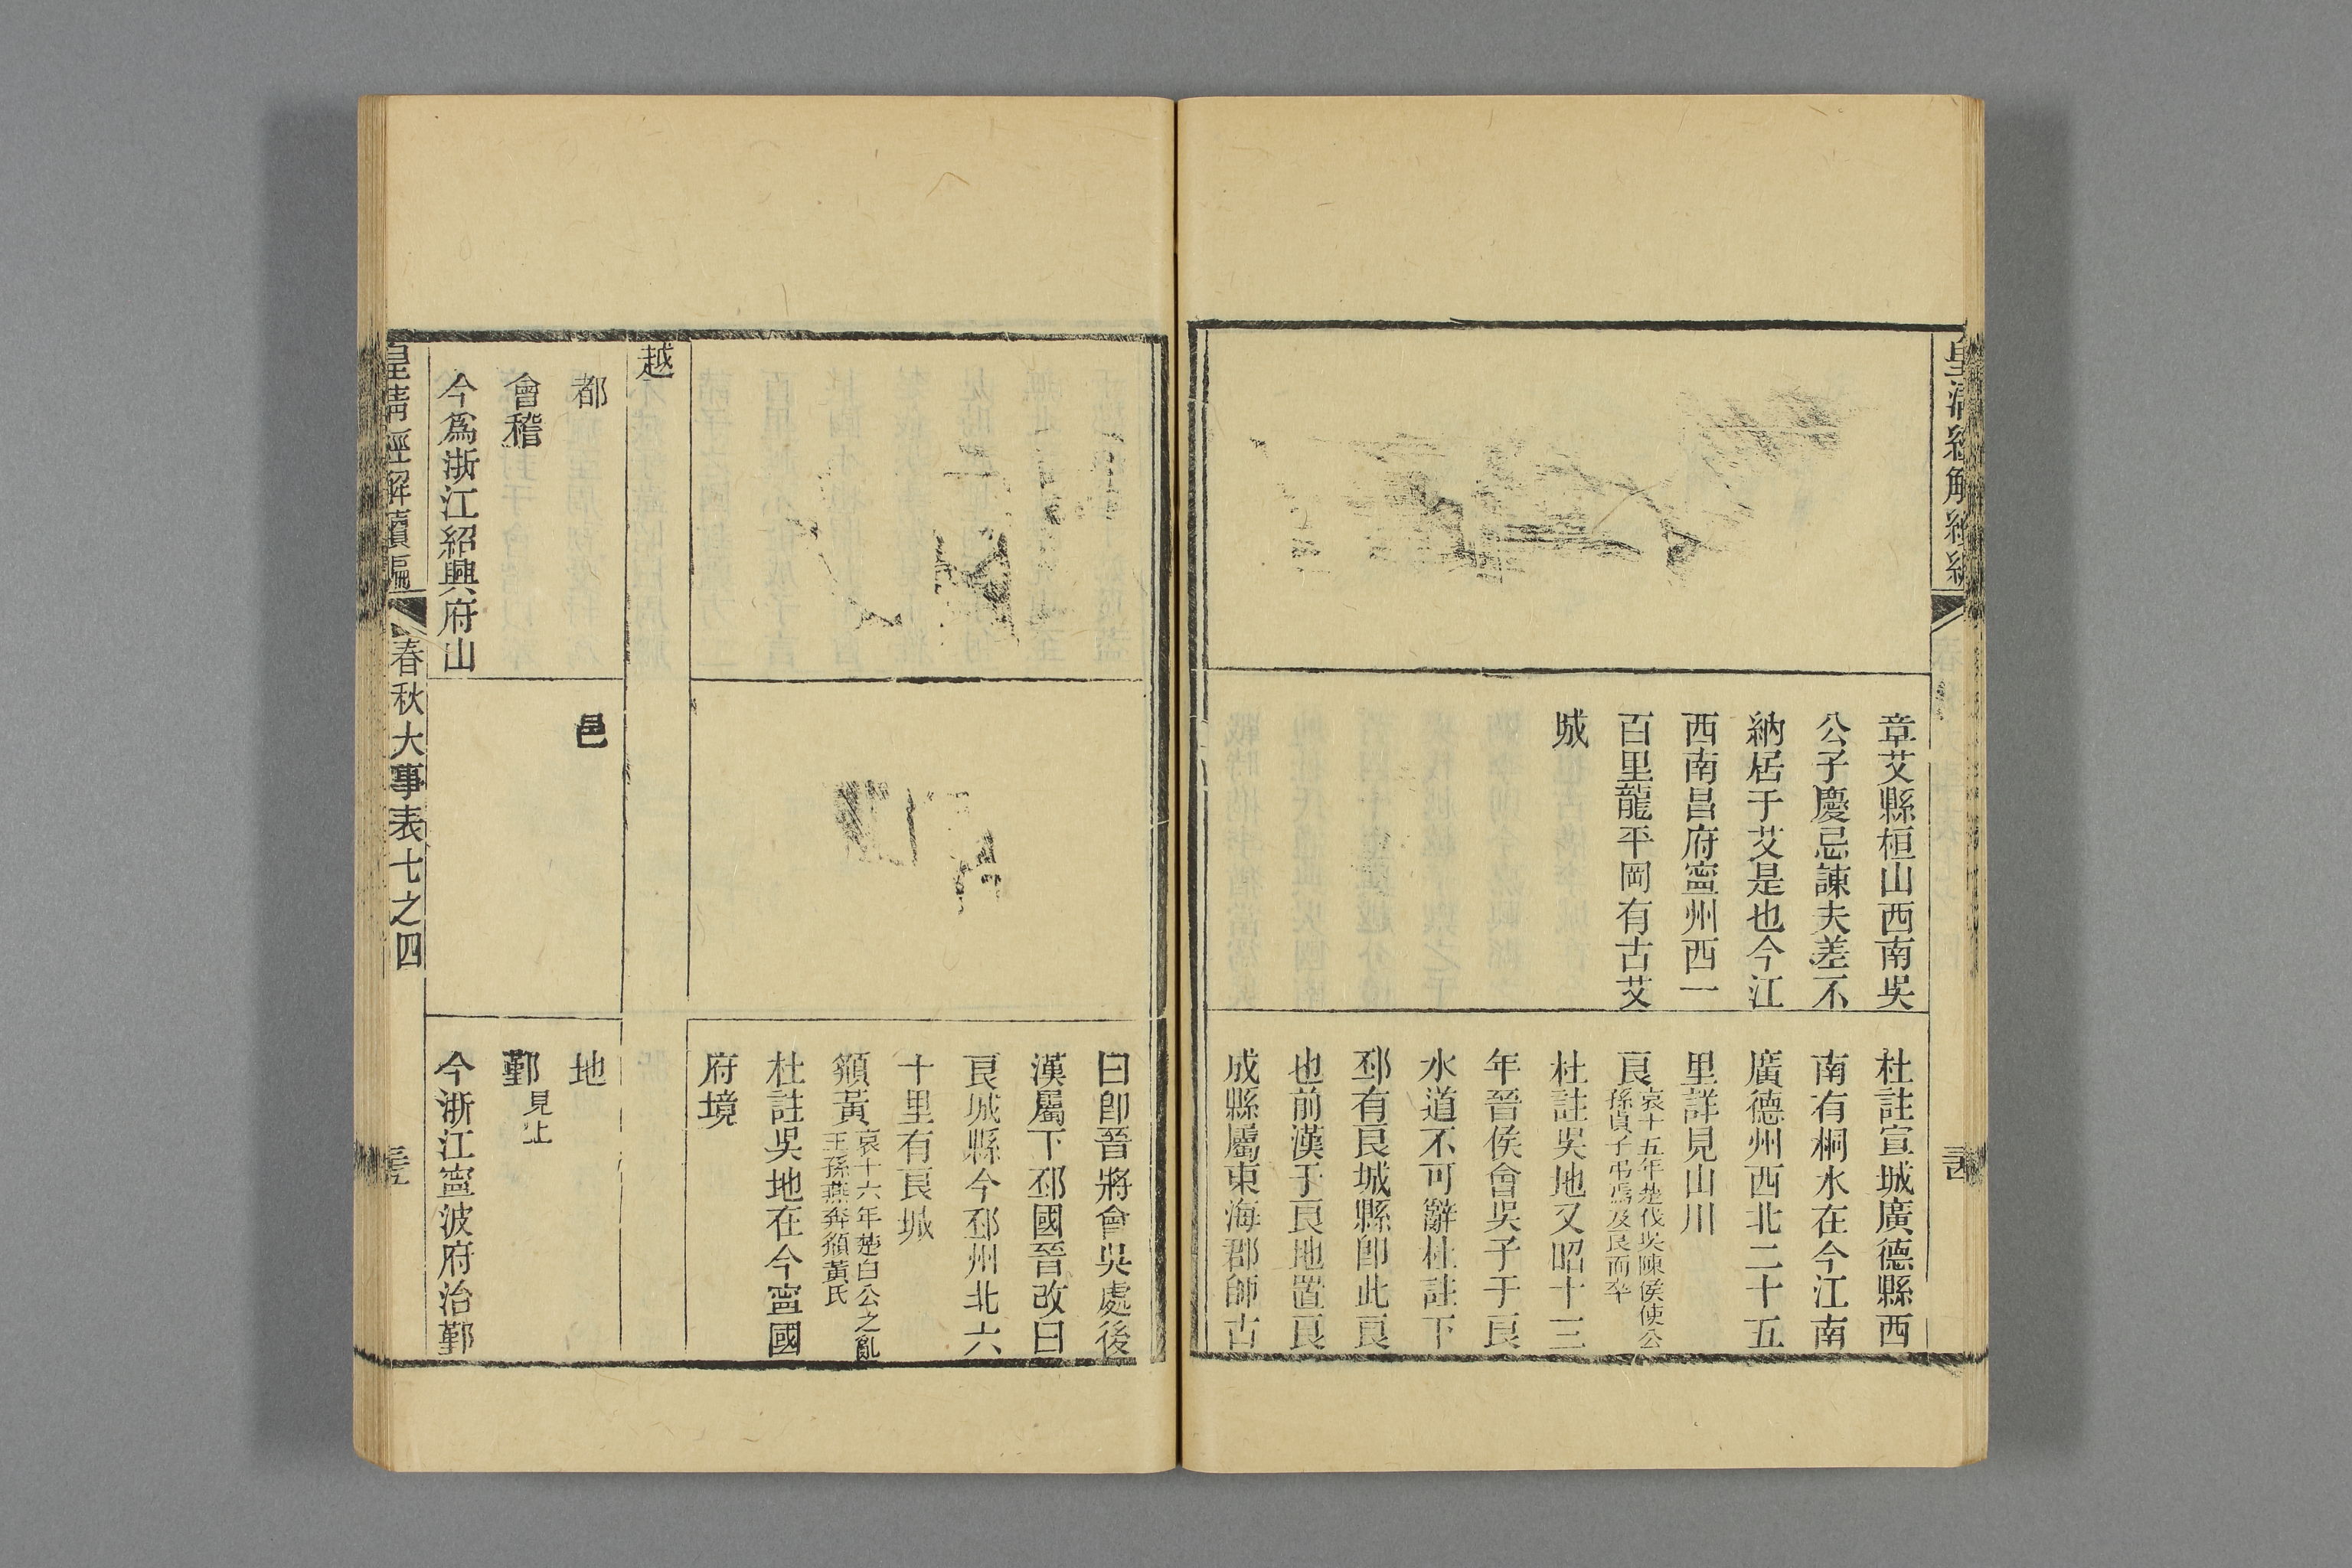 皇清經解續編
章艾縣桓山西南吳
公子慶忌諫夫差不
納居于艾是也今江
西南昌府寧州西一
百里龍平岡有古艾
城
杜註宣城廣德縣西
南有桐水在今江南
廣德州西北二十五
里詳見山川
良哀十五年楚伐吳陳侯使公
孫貞子弔焉及良而卒
杜註吳地又昭十三
年晉侯會吳子于良
水道不可辭杜註下
邳有良城縣卽此良
也前漢于良地置良
成縣屬東海郡師古
曰卽晉將會吳處後
漢屬下邳國晉改曰
良城縣今邳州北六
十里有良城
頟黃哀十六年楚白公之亂
王孫燕奔頟黃氏
杜註吳地在今寧國
府境
越
都
會稽
今爲浙江紹興府山
邑
地
鄞見上
今浙江寧波府治鄞
皇清經解續編
春秋大事表七之四